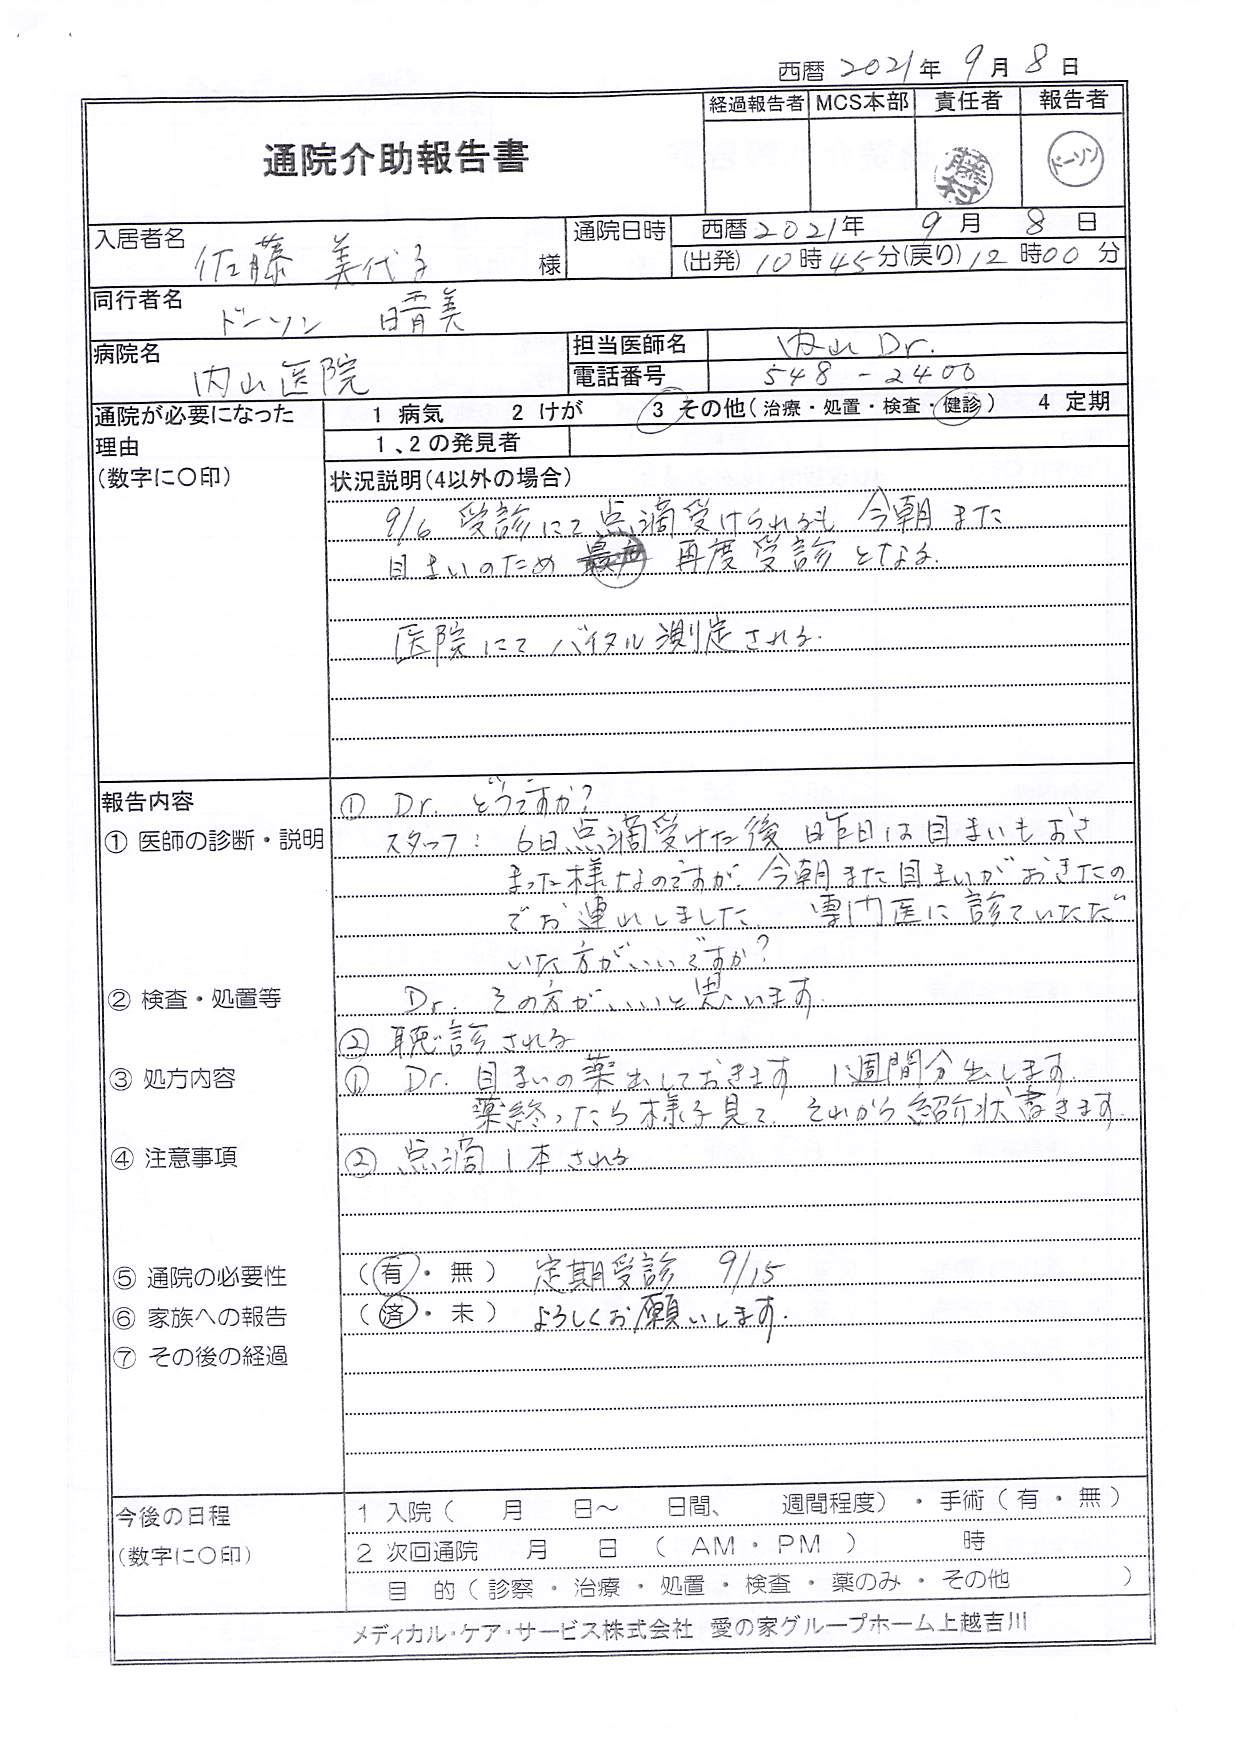 西暦 2021年 9月 8日
経過報告者 MCS本部 責任者 報告者
通院介助報告書
藤村 ドーソン
入居者名 佐藤 美代子 様
通院日時 西暦2021年 9月 8日
(出発) 10時45分(戻り)12時00分
同行者名 ドーソン 晴美
病院名 内山医院
担当医師名 内山 Dr.
電話番号 548-2400
通院が必要になった理由
(数字に〇印)
1 病気 2 けが 3 その他(治療・処置・検査・健診) 4 定期
1、2の発見者
状況説明(4以外の場合)
9/6 受診にて点滴受けられるも 今朝また
目まいのため 再度受診となる.
医院にてバイタル測定される.
報告内容
① 医師の診断・説明
② 検査・処置等
③ 処方内容
④ 注意事項
⑤ 通院の必要性
⑥ 家族への報告
⑦ その後の経過
① Dr. どうですか?
スタッフ: 6日点滴受けた後 昨日は目まいもおさ
まった様なのですが、今朝また目まいがおきたの
でお連れしました 専門医に診ていただ
いた方がいいですか?
Dr. その方がいいと思います.
② 聴診される
① Dr. 目まいの薬出しておきます 1週間分出します.
薬終ったら様子見て、それから紹介状書きます.
② 点滴1本される
(有・無) 定期受診 9/15
(済・未) よろしくお願いします.
今後の日程
(数字に〇印)
1 入院( 月 日~ 日間、 週間程度)・手術(有・無)
2 次回通院 月 日 (AM・PM) 時
目 的(診察・治療・処置・検査・薬のみ・その他 )
メディカル・ケア・サービス株式会社 愛の家グループホーム上越吉川